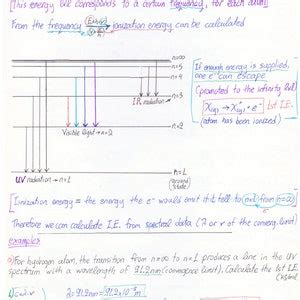 [This energy lvl corresponds to a certain frequency, for each atom]
From the frequency (E=hv) ionization energy can be calculated
n=∞
n=5
n=4
n=3
IR radiation→
n=2
Visible light→n=2
UV radiation→n=1
n=1
(ground state)
If enough energy is supplied,
one e⁻ can escape
(promoted to the infinity lvl)
X(g) → X⁺(g) + e⁻ 1st I.E.
(atom has been ionized)
[Ionization energy = the energy the e⁻ would emit if it fell to n=1 from n=∞]
Therefore we can calculate I.E. from spectral data (λ or ν of the converg. limit)
examples
For hydrogen atom, the transition from n=∞ to n=1 produces a line in the UV
spectrum with a wavelength of 91.2nm (convergence limit). Calculate the 1st IE
λ=91.2nm